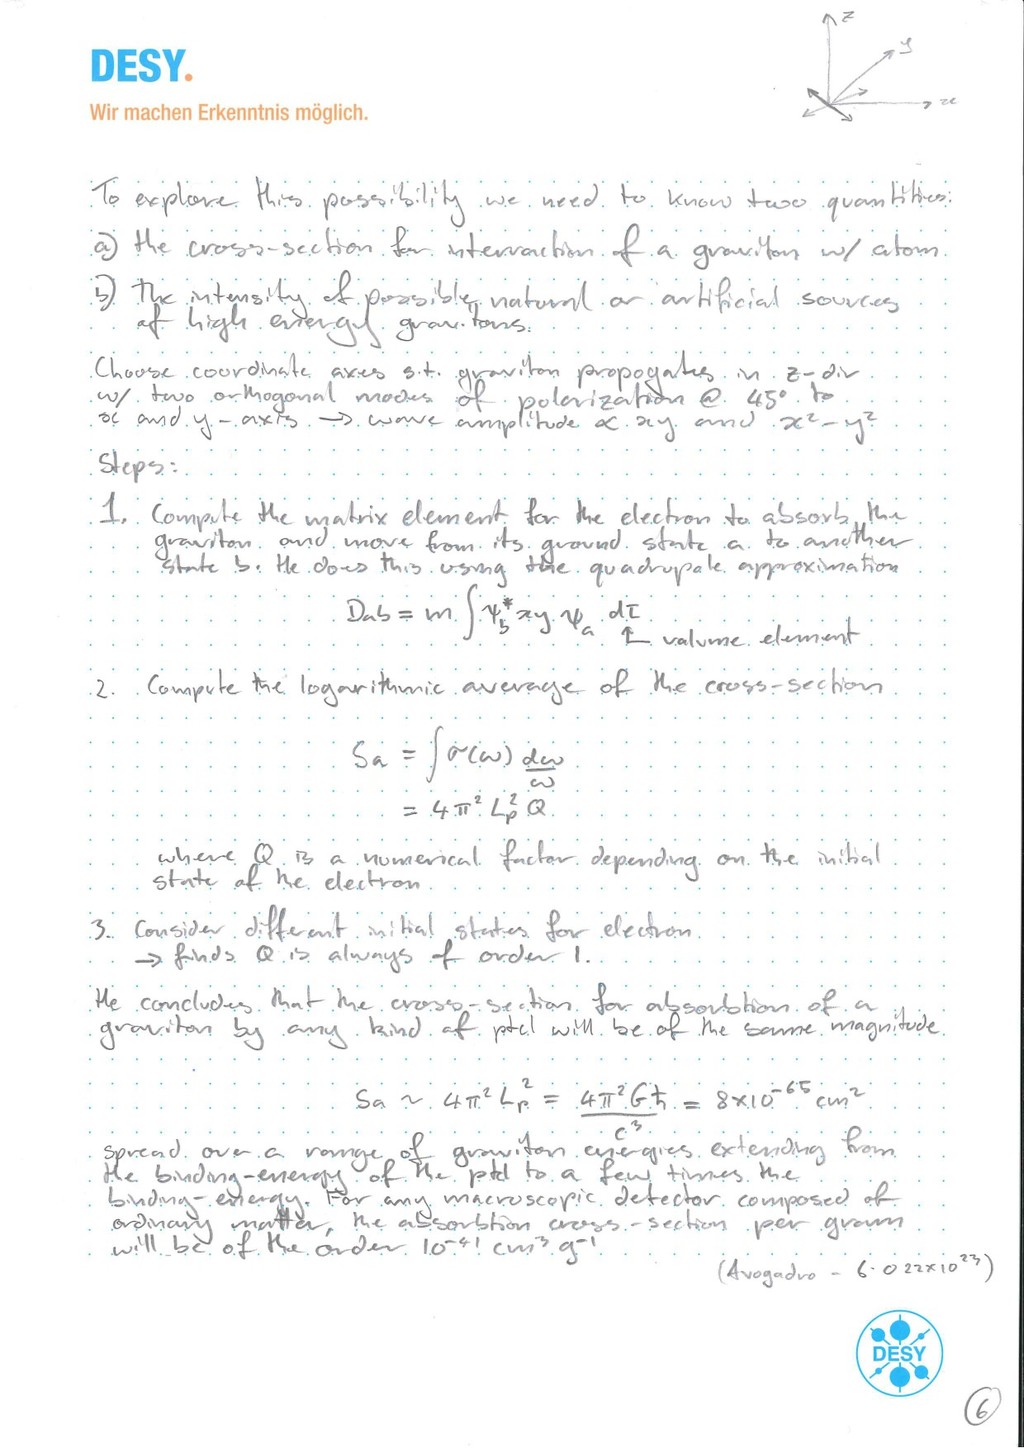 z
y
x
DESY.
Wir machen Erkenntnis möglich.
To explore this possibility we need to know two quantities:
a) the cross-section for interraction of a graviton w/ atom
b) The intensity of possible natural or artificial sources
of high energy gravitons.
Choose coordinate axes s.t. graviton propogates in z-dir
w/ two orthogonal modes of polarization @ 45° to
x and y-axis → wave amplitude ∝ xy and x²-y²
Steps:
1. Compute the matrix element for the electron to absorb the
graviton and move from its ground state a to another
state b. He does this using the quadrupole approximation
Dab = m ∫ ψ_b* xy ψ_a dτ
↑ volume element
2. Compute the logarithmic average of the cross-section
Sa = ∫ σ(ω) dω/ω
= 4π² Lp² Q
where Q is a numerical factor depending on the initial
state of the electron
3. Consider different initial states for electron
→ finds Q is always of order 1.
He concludes that the cross-section for absorbtion of a
graviton by any kind of ptcl will be of the same magnitude
Sa ~ 4π² Lp² = 4π²Għ/c³ = 8×10⁻⁶⁵ cm²
spread over a range of graviton energies extending from
the binding-energy of the ptcl to a few times the
binding-energy. For any macroscopic detector composed of
ordinary matter, the absorbtion cross-section per gram
will be of the order 10⁻⁴¹ cm³ g⁻¹
(Avogadro - 6.022×10²³)
DESY
6